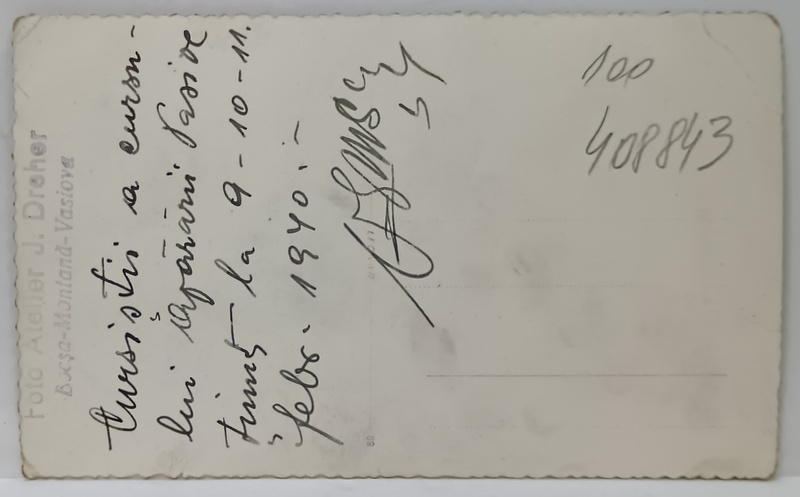 Foto Atelier J. Dreher
Bocşa-Montană-Vasiova
Cursiştii a cursu-
lui Apărării Pasive
ţinut la 9-10-11.
febr. 1940.-
100
408843